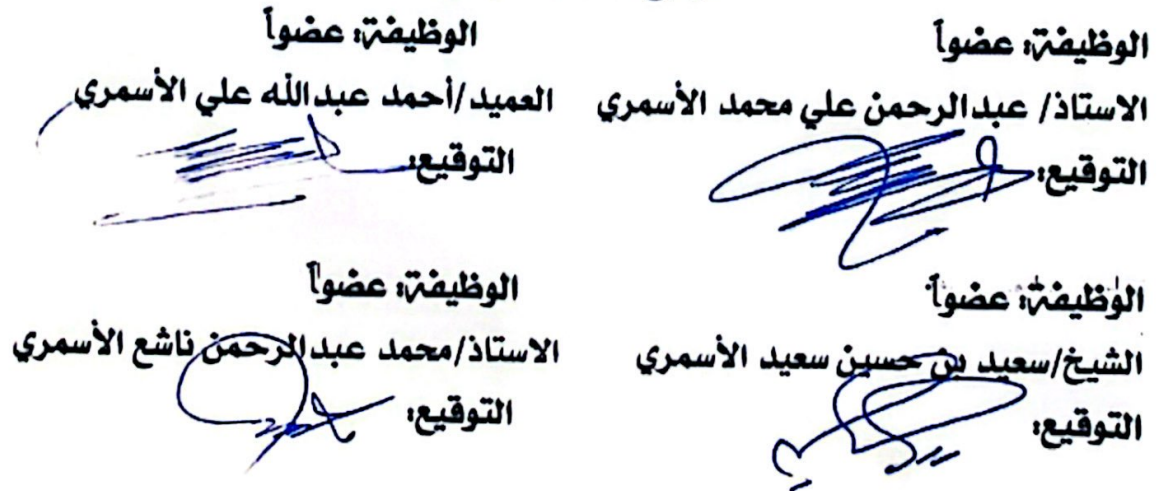 الوظيفة: عضواً
الاستاذ/ عبدالرحمن علي محمد الأسمري
التوقيع:
الوظيفة: عضواً
العميد/أحمد عبدالله علي الأسمري
التوقيع:
الوظيفة: عضواً
الشيخ/سعيد بن حسين سعيد الأسمري
التوقيع:
الوظيفة: عضواً
الاستاذ/محمد عبدالرحمن ناشع الأسمري
التوقيع: